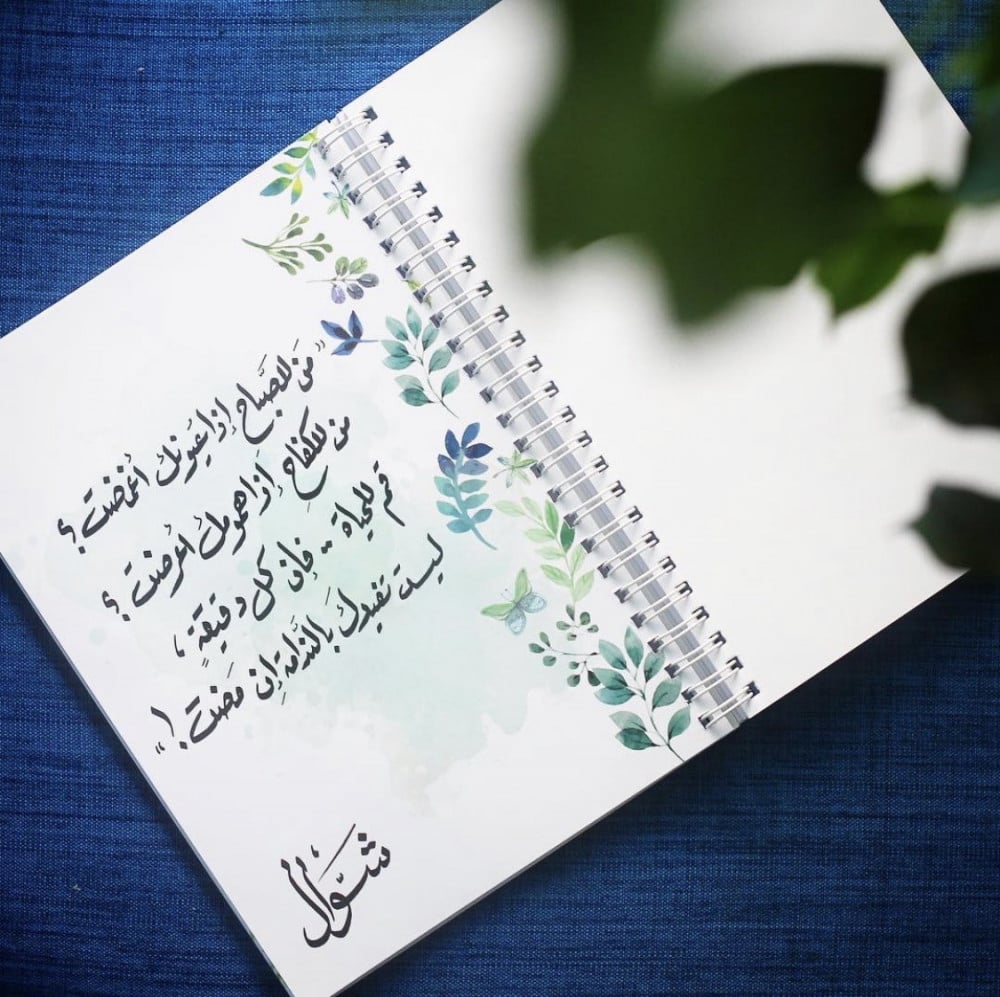 "مَن للصَّباحِ إذا عيونك أُغمضت ؟
من للكفاحِ إذا همومك أعرضت ؟
قم للحياة .. فإن كل دقيقةٍ ،
ليست تفيدكَ بالنَّدامة إن مَضت . !"
شوّال